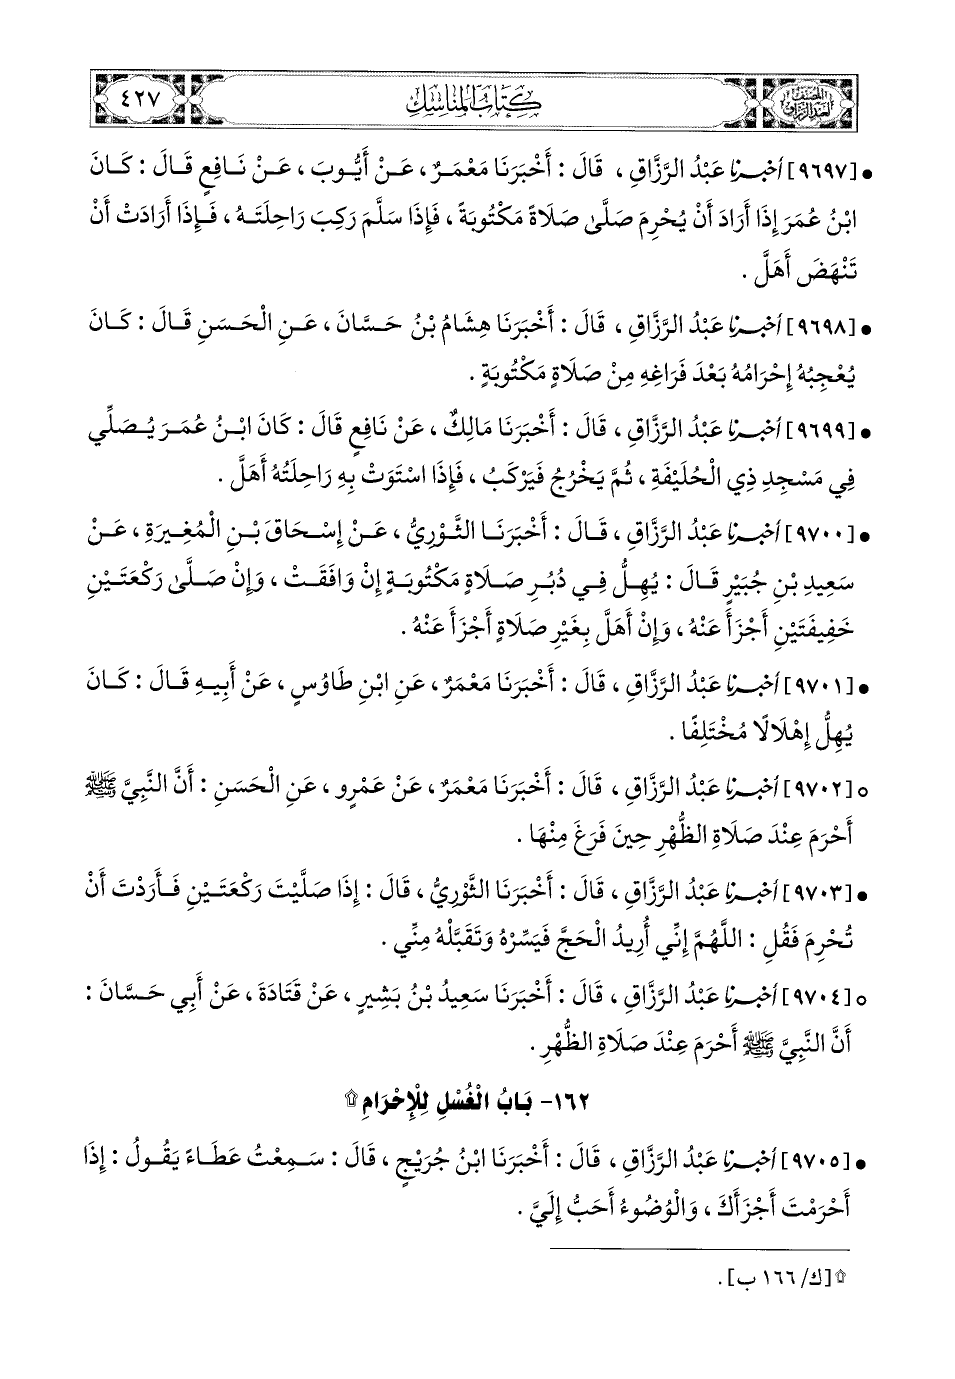 المصنف
لعبد الرزاق
كتاب المناسك
٤٢٧
• [٩٦٩٧] أخبرنا عَبْدُ الرَّزَّاقِ ، قَالَ : أَخْبَرَنَا مَعْمَرٌ ، عَنْ أَيُّوبَ ، عَنْ نَافِعٍ قَالَ : كَانَ
ابْنُ عُمَرَ إِذَا أَرَادَ أَنْ يُحْرِمَ صَلَّىٰ صَلَاةً مَكْتُوبَةً ، فَإِذَا سَلَّمَ رَكِبَ رَاحِلَتَهُ ، فَإِذَا أَرَادَتْ أَنْ
تَنْهَضَ أَهَلَّ .
• [٩٦٩٨] أخبرنا عَبْدُ الرَّزَّاقِ ، قَالَ : أَخْبَرَنَا هِشَامُ بْنُ حَسَّانَ ، عَنِ الْحَسَنِ قَالَ : كَانَ
يُعْجِبُهُ إِحْرَامُهُ بَعْدَ فَرَاغِهِ مِنْ صَلَاةٍ مَكْتُوبَةٍ .
• [٩٦٩٩] أخبرنا عَبْدُ الرَّزَّاقِ ، قَالَ : أَخْبَرَنَا مَالِكٌ ، عَنْ نَافِعٍ قَالَ : كَانَ ابْنُ عُمَرَ يُصَلِّي
فِي مَسْجِدِ ذِي الْحُلَيْفَةِ ، ثُمَّ يَخْرُجُ فَيَرْكَبُ ، فَإِذَا اسْتَوَتْ بِهِ رَاحِلَتُهُ أَهَلَّ .
• [٩٧٠٠] أخبرنا عَبْدُ الرَّزَّاقِ ، قَالَ : أَخْبَرَنَا الثَّوْرِيُّ ، عَنْ إِسْحَاقَ بْنِ الْمُغِيرَةِ ، عَنْ
سَعِيدِ بْنِ جُبَيْرٍ قَالَ : يُهِلُّ فِي دُبُرِ صَلَاةٍ مَكْتُوبَةٍ إِنْ وَافَقَتْ ، وَإِنْ صَلَّىٰ رَكْعَتَيْنِ
خَفِيفَتَيْنِ أَجْزَأَ عَنْهُ ، وَإِنْ أَهَلَّ بِغَيْرِ صَلَاةٍ أَجْزَأَ عَنْهُ .
• [٩٧٠١] أخبرنا عَبْدُ الرَّزَّاقِ ، قَالَ : أَخْبَرَنَا مَعْمَرٌ ، عَنِ ابْنِ طَاوُسٍ ، عَنْ أَبِيهِ قَالَ : كَانَ
يُهِلُّ إِهْلَالًا مُخْتَلِفًا .
○ [٩٧٠٢] أخبرنا عَبْدُ الرَّزَّاقِ ، قَالَ : أَخْبَرَنَا مَعْمَرٌ ، عَنْ عَمْرٍو ، عَنِ الْحَسَنِ : أَنَّ النَّبِيَّ ﷺ
أَحْرَمَ عِنْدَ صَلَاةِ الظُّهْرِ حِينَ فَرَغَ مِنْهَا .
• [٩٧٠٣] أخبرنا عَبْدُ الرَّزَّاقِ ، قَالَ : أَخْبَرَنَا الثَّوْرِيُّ ، قَالَ : إِذَا صَلَّيْتَ رَكْعَتَيْنِ فَأَرَدْتَ أَنْ
تُحْرِمَ فَقُلِ : اللَّهُمَّ إِنِّي أُرِيدُ الْحَجَّ فَيَسِّرْهُ وَتَقَبَّلْهُ مِنِّي .
○ [٩٧٠٤] أخبرنا عَبْدُ الرَّزَّاقِ ، قَالَ : أَخْبَرَنَا سَعِيدُ بْنُ بَشِيرٍ ، عَنْ قَتَادَةَ ، عَنْ أَبِي حَسَّانَ :
أَنَّ النَّبِيَّ ﷺ أَحْرَمَ عِنْدَ صَلَاةِ الظُّهْرِ .
١٦٢- بَابُ الْغُسْلِ لِلْإِحْرَامِ ۩
• [٩٧٠٥] أخبرنا عَبْدُ الرَّزَّاقِ ، قَالَ : أَخْبَرَنَا ابْنُ جُرَيْجٍ ، قَالَ : سَمِعْتُ عَطَاءً يَقُولُ : إِذَا
أَحْرَمْتَ أَجْزَأَكَ ، وَالْوُضُوءُ أَحَبُّ إِلَيَّ .
۩ [ك/ ١٦٦ ب] .